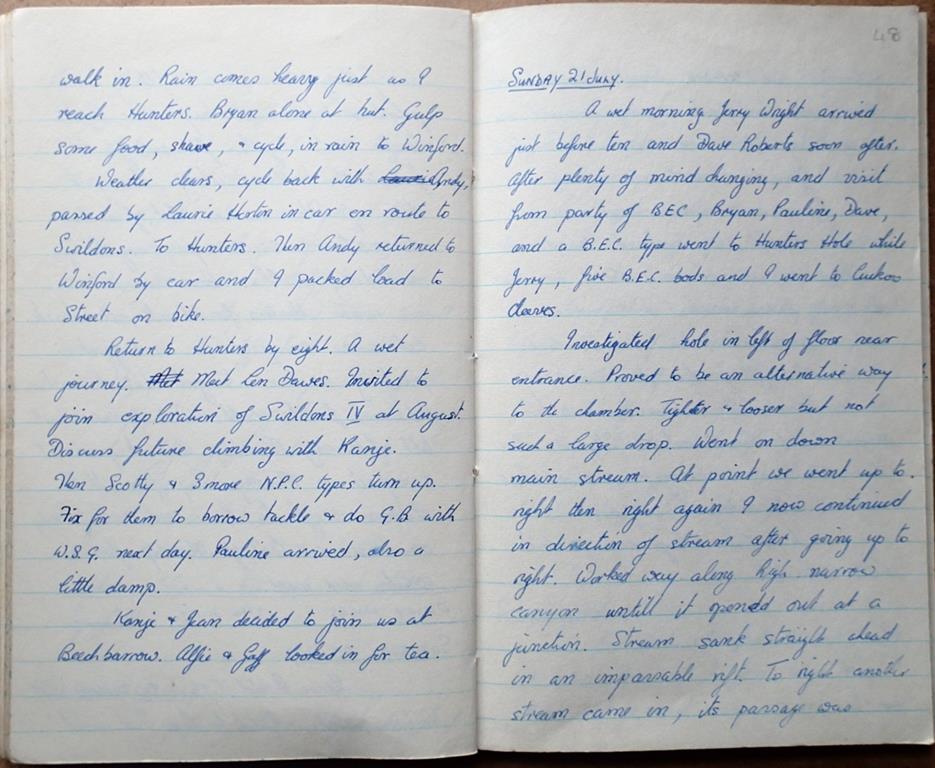 walk in. Rain comes heavy just as I
reach Hunters. Bryan alone at hut. Gulp
some food, shave, & cycle, in rain to Winford.
Weather clears, cycle back with Laurie Andy,
passed by Laurie Horton in car en route to
Swildons. To Hunters. Then Andy returned to
Winford by car and I packed load to
Street on bike.
Return to Hunters by eight. A wet
journey. Met Meet Len Dawes. Invited to
join exploration of Swildons IV at August.
Discuss future climbing with Kanje.
Then Scotty & 3 more N.P.C. types turn up.
Fix for them to borrow tackle & do G.B with
W.S.G. next day. Pauline arrived, also a
little damp.
Kanje & Jean decided to join us at
Beechbarrow. Alfie & Gaff looked in for tea.
48
SUNDAY 21 JULY.
A wet morning Jerry Wright arrived
just before ten and Dave Roberts soon after.
After plenty of mind changing, and visit
from party of BEC, Bryan, Pauline, Dave,
and a B.E.C. type went to Hunters Hole while
Jerry, five B.E.C. bods and I went to Cuckoo
Cleeves.
Investigated hole in left of floor near
entrance. Proved to be an alternative way
to the chamber. Tighter & looser but not
such a large drop. Went on down
main stream. At point we went up to
right then right again I now continued
in direction of stream after going up to
right. Worked way along high narrow
canyon untill it opened out at a
junction. Stream sank straight ahead
in an impassable rift. To right another
stream came in, its passage was